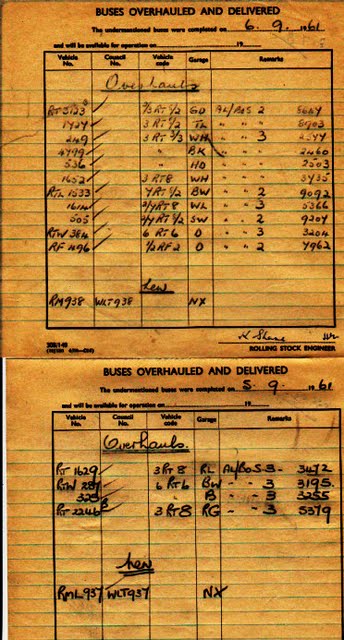 BUSES OVERHAULED AND DELIVERED
The undermentioned buses were completed on 6. 9. 1961
and will be available for operation on 19
Vehicle No. Council No. Vehicle code Garage Remarks
Overhauls
RT 3123 2/3 RT 1/2 GD AL/BOS 2
1927 3 RT 1/2 TL " " 8903
249 3 RT 3/3 WH " " 3
4799 " BK " " 2460
536 " HD " " 2503
1652 3 RT8 WH " " 3735
RTL 1533 7RT 1/2 BW " " 2 9092
1614 2/7 RT 8 WL " " 3 5366
505 2/7 RT 1/2 SW " " 2 9204
RTW 384 6 RT 6 D " " 3 3204
RF 496 1/2 RF 2 D " " 2 7962
new
RM938 WLT938 NX
ROLLING STOCK ENGINEER
BUSES OVERHAULED AND DELIVERED
The undermentioned buses were completed on 5. 9. 1961
and will be available for operation on 19
Vehicle No. Council No. Vehicle code Garage Remarks
Overhauls
RT 1629 3 RT 8 RL AL/BOS - 3 - 3472
RTW 287 6 RT 6 BW " - 3 3195.
325 " B " - 3 3255
RT 2246 3 RT 8 RG " - 3 5379
new
RML937 WLT937 NX